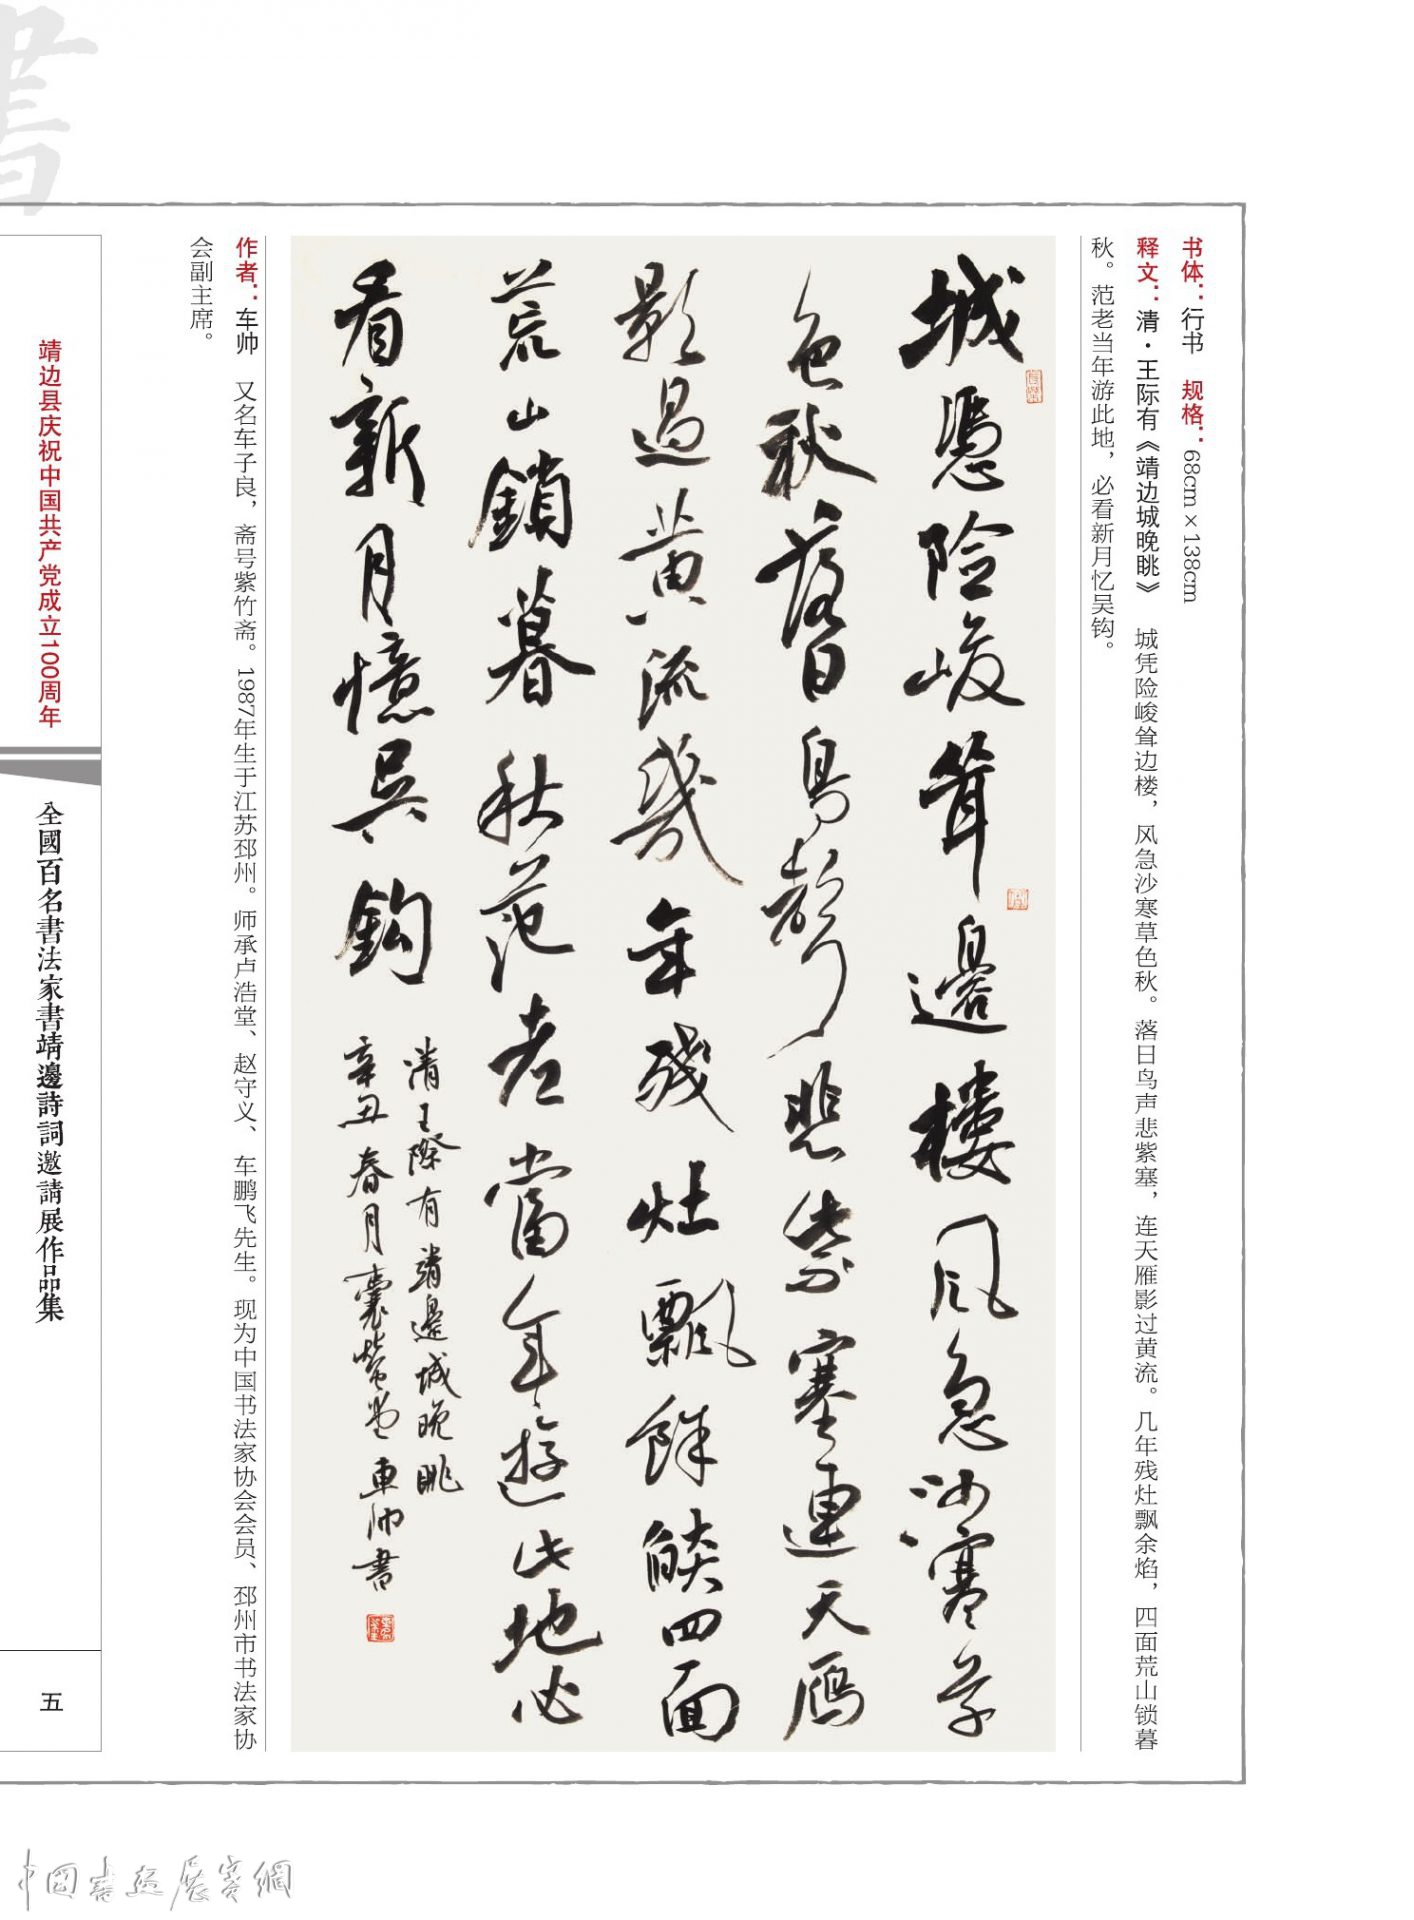 书体：行书　规格：68cm×138cm
释文：清·王际有《靖边城晚眺》　城凭险峻耸边楼，风急沙寒草色秋。落日鸟声悲紫塞，连天雁影过黄流。几年残灶飘余焰，四面荒山锁暮
秋。范老当年游此地，必看新月忆吴钩。
城憑险峻耸邊楼风急沙寒草
色秋落日鳥聲悲紫塞連天鴈
影過黄流幾年残灶飄餘燄四面
荒山鎖暮秋范老當年遊此地必
看新月憶吴鈎
清王際有靖邊城晚眺
辛丑春月囊螢堂車帅書
作者：车帅　又名车子良，斋号紫竹斋。1987年生于江苏邳州。师承卢浩堂、赵守义、车鹏飞先生。现为中国书法家协会会员、邳州市书法家协
会副主席。
書
靖边县庆祝中国共产党成立100周年
全國百名書法家書靖邊詩詞邀請展作品集
五
中國書画展賽網